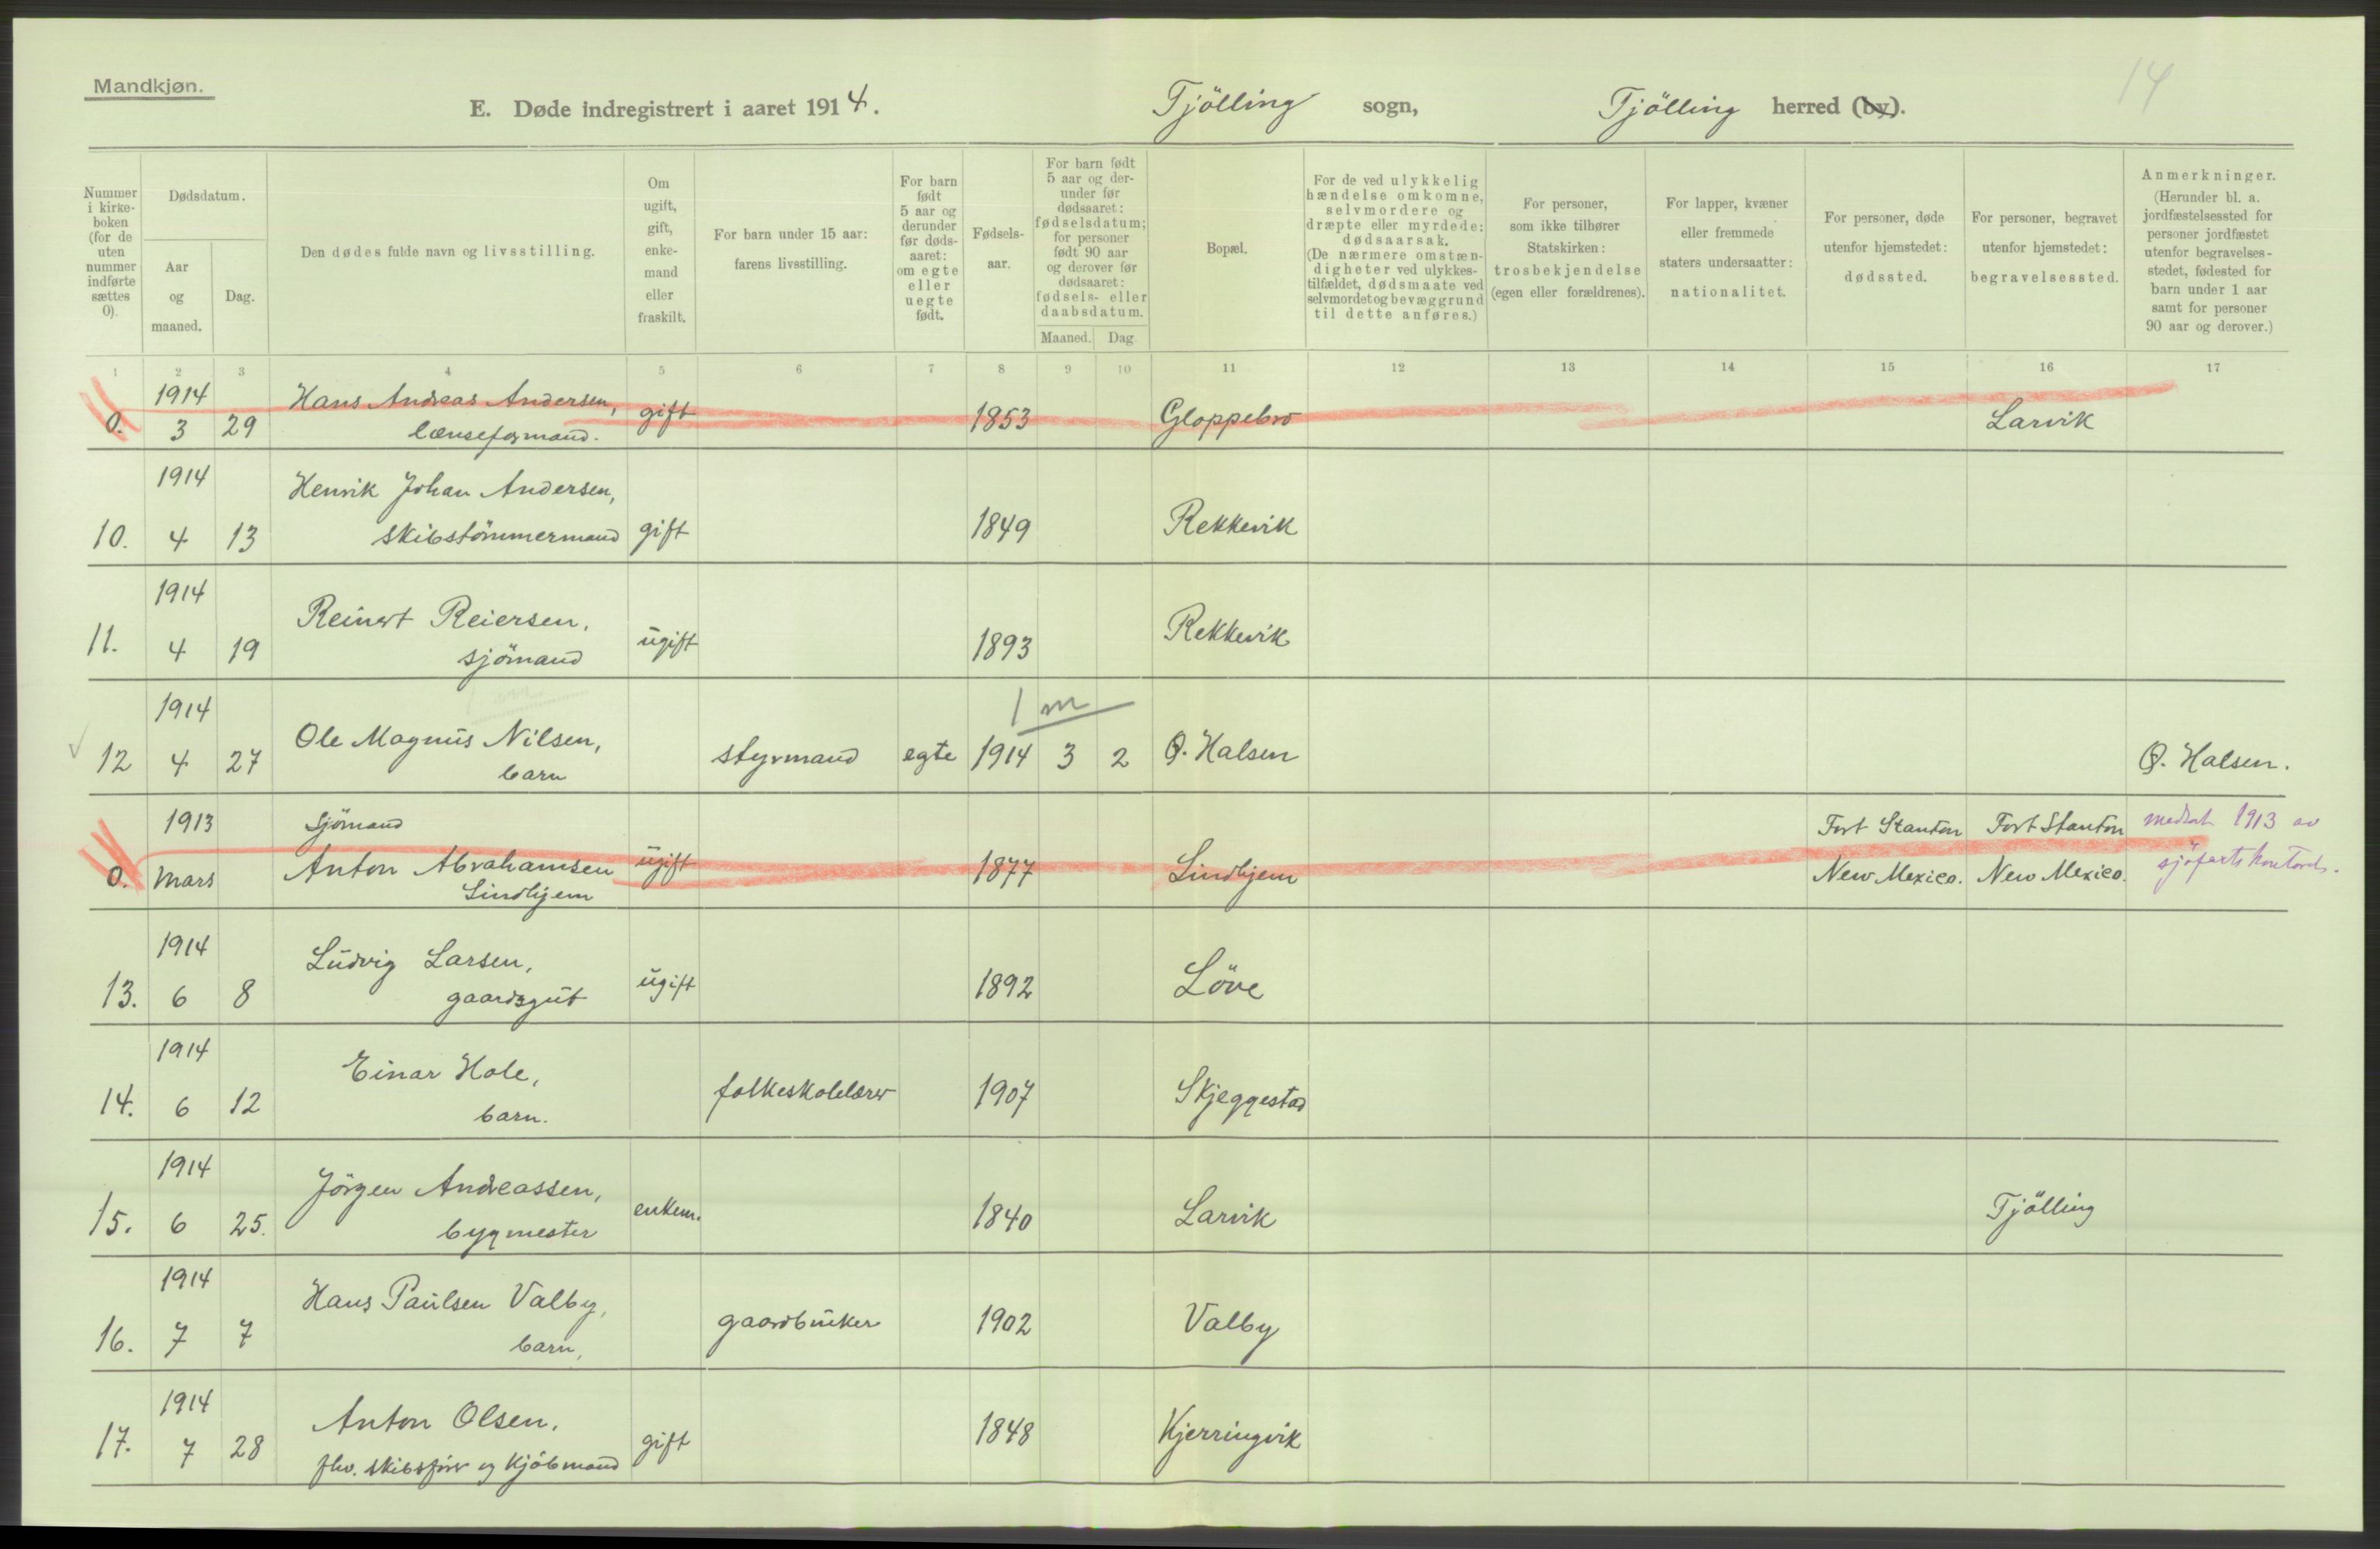 Mandkjøn.
14
E. Døde indregistrert i aaret 1914.
Tjölling sogn,
Tjölling herred (by).
Nummer
i kirke-
boken
(for de
uten
nummer
indførte
sættes
0).
Dødsdatum.
Aar
og
maaned.
Dag.
Den dødes fulde navn og livsstilling.
Om
ugift,
gift,
enke-
mand
eller
fraskilt.
For barn under 15 aar:
farens livsstilling.
For barn
født
5 aar og
derunder
før døds-
aaret:
om egte
eller
uegte
født.
Fødsels-
aar.
For barn født
5 aar og der-
under før
dødsaaret:
fødselsdatum;
for personer
født 90 aar
og derover før
dødsaaret:
fødsels- eller
daabsdatum.
Maaned.
Dag
Bopæl.
For de ved ulykkelig
hændelse omkomne,
selvmordere og
dræpte eller myrdede:
dødsaarsak.
(De nærmere omstæn-
digheter ved ulykkes-
tilfældet, dødsmaate ved
selvmordet og bevæggrund
til dette anføres.)
For personer,
som ikke tilhører
Statskirken:
trosbekjendelse
(egen eller forældrenes).
For lapper, kvæner
eller fremmede
staters undersaatter:
nationalitet.
For personer, døde
utenfor hjemstedet:
dødssted.
For personer, begravet
utenfor hjemstedet:
begravelsessted.
Anmerkninger.
(Herunder bl. a.
jordfæstelsessted for
personer jordfæstet
utenfor begravelses-
stedet, fødested for
barn under 1 aar
samt for personer
90 aar og derover.)
1 2 3 4 5 6 7 8 9 10 11 12 13 14 15 16 17
1914 Hans Andreas Andersen,
0. 3 29 lænseformand. gift 1853 Gloppebro Larvik
1914 Henrik Johan Andersen,
10. 4 13 skibstömmermand gift 1849 Rekkevik
1914 Reinert Reiersen,
11. 4 19 sjömand ugift 1893 Rekkevik
1914 1 m
12 4 27 Ole Magnus Nilsen, styrmand egte 1914 3 2 Ö. Halsen Ö. Halsen.
barn
1913 Sjömand Fort Stanton Fort Stanton medtat 1913 av
0. Mars Anton Abrahamsen ugift 1877 Lindhjem New Mexico. New Mexico. sjöfartskontoret.
Lindhjem
1914 Ludvig Larsen,
13. 6 8 gaardsgut ugift 1892 Löve
1914 Einar Hole,
14. 6 12 barn. folkeskolelærer 1907 Skjeggestad
1914 Jörgen Andreassen,
15. 6 25. bygmester enkem. 1840 Larvik Tjölling
1914 Hans Paulsen Valby,
16. 7 7 barn, gaardbruker 1902 Valby
1914 Anton Olsen,
17. 7 28 fhv. skibsförer og kjöbmand gift 1848 Kjerringvik